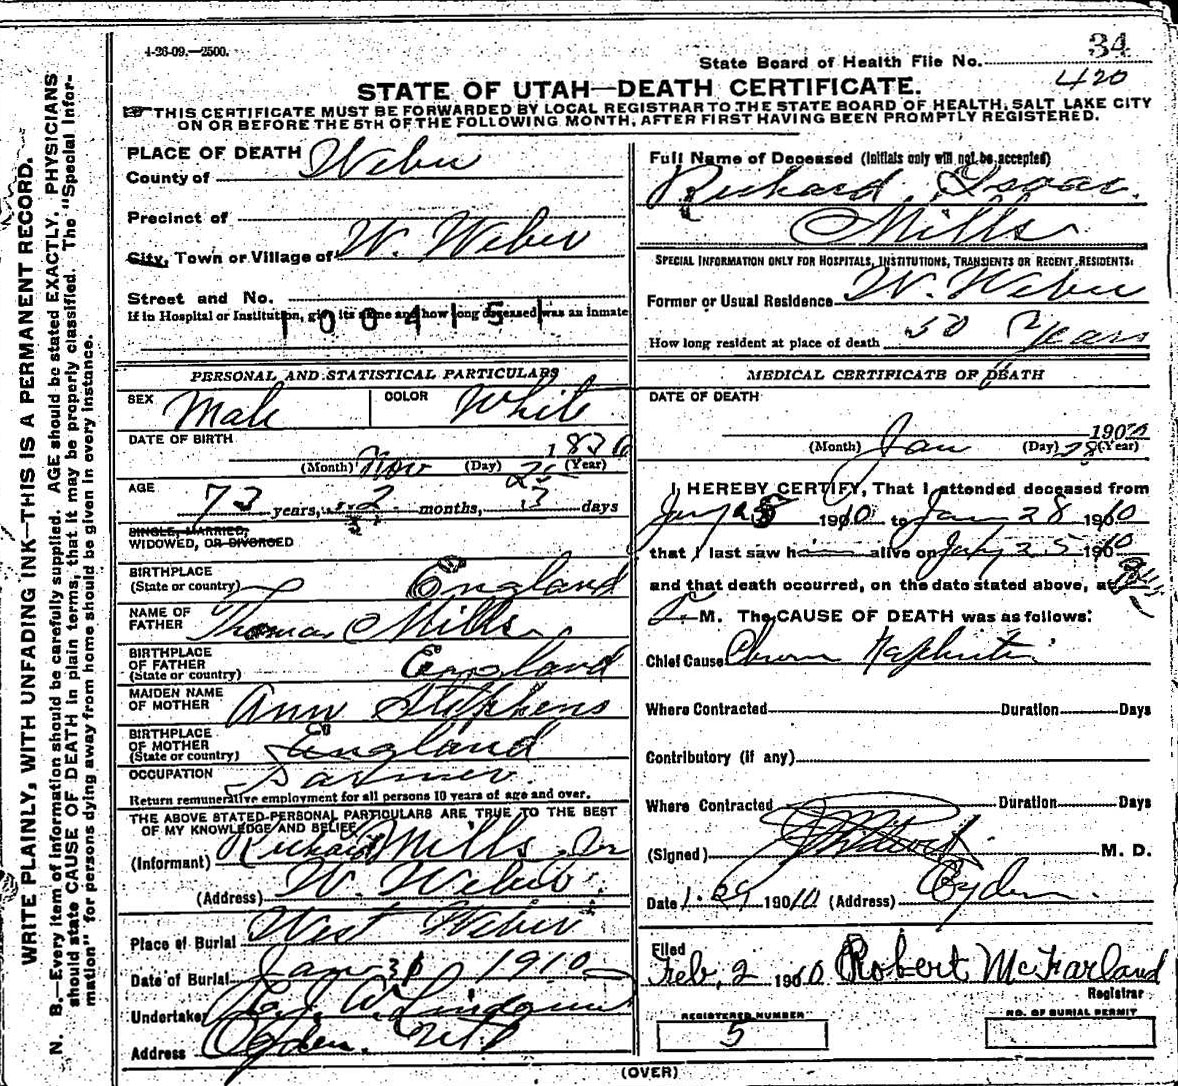 1-26-09.—2500.
34
State Board of Health File No.
420
STATE OF UTAH—DEATH CERTIFICATE.
THIS CERTIFICATE MUST BE FORWARDED BY LOCAL REGISTRAR TO THE STATE BOARD OF HEALTH, SALT LAKE CITY
ON OR BEFORE THE 5TH OF THE FOLLOWING MONTH, AFTER FIRST HAVING BEEN PROMPTLY REGISTERED.
WRITE PLAINLY, WITH UNFADING INK—THIS IS A PERMANENT RECORD.
N. B.—Every item of information should be carefully supplied. AGE should be stated EXACTLY. PHYSICIANS
should state CAUSE OF DEATH in plain terms, that it may be properly classified. The "Special Infor-
mation" for persons dying away from home should be given in every instance.
PLACE OF DEATH
County of Weber
Precinct of
City, Town or Village of W. Weber
Street and No.
If in Hospital or Institution, give its name and how long deceased was an inmate
1004151
Full Name of Deceased (Initials only will not be accepted)
Richard Isaac
Mills
SPECIAL INFORMATION ONLY FOR HOSPITALS, INSTITUTIONS, TRANSIENTS OR RECENT RESIDENTS:
Former or Usual Residence W. Weber
How long resident at place of death 50 Years
PERSONAL AND STATISTICAL PARTICULARS
SEX Male COLOR White
DATE OF BIRTH
(Month) Nov (Day) 25 (Year) 1836
AGE
73 years, 2 months, 3 days
SINGLE, MARRIED,
WIDOWED, OR DIVORCED
BIRTHPLACE
(State or country) England
NAME OF
FATHER Thomas Mills
BIRTHPLACE
OF FATHER
(State or country) England
MAIDEN NAME
OF MOTHER Ann Stephens
BIRTHPLACE
OF MOTHER
(State or country) England
OCCUPATION Farmer.
Return remunerative employment for all persons 10 years of age and over.
THE ABOVE STATED PERSONAL PARTICULARS ARE TRUE TO THE BEST
OF MY KNOWLEDGE AND BELIEF
(Informant) Richard Mills Jr
(Address) W. Weber
Place of Burial West Weber
Date of Burial Jan 31 1910
Undertaker
Address Ogden
MEDICAL CERTIFICATE OF DEATH
DATE OF DEATH
(Month) Jan (Day) 28 (Year) 190
I HEREBY CERTIFY, That I attended deceased from
1910 to Jan 28 1910
that I last saw him alive on 25 1910
and that death occurred, on the date stated above, at
M. The CAUSE OF DEATH was as follows:
Chief Cause
Where Contracted Duration Days
Contributory (if any)
Where Contracted Duration Days
(Signed) M. D.
Date 1.29 1910 (Address) Ogden.
Filed
Feb, 2 1910 Robert McFarland
Registrar
REGISTERED NUMBER
5
NO. OF BURIAL PERMIT
(OVER)